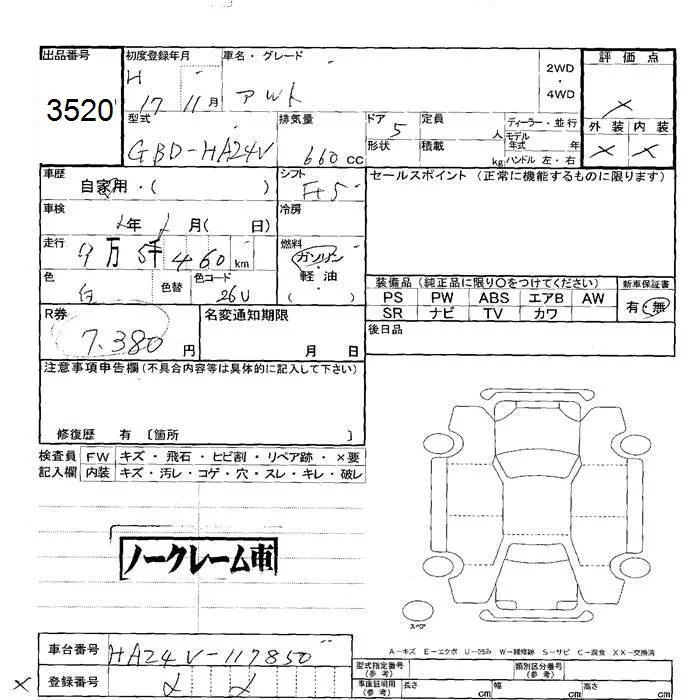 出品番号 初度登録年月 車名・グレード 評価点
3520 H 17 11月 アルト 2WD・4WD ×
型式 排気量 ドア 定員 ディーラー・並行 外装 内装
GBD-HA24V 660cc 5 人 モデル年式 年 × ×
形状 積載 kg ハンドル 左・右
車歴 シフト セールスポイント (正常に機能するものに限ります)
自家用・( ) F5
車検 冷房
年 月( 日)
走行 燃料
9万5千460km ガソリン・軽油
色 色替 色コード ( )
白 26U
装備品(純正品に限り○をつけてください) 新車保証書
PS PW ABS エアB AW 有・無
SR ナビ TV カワ
R券 名変通知期限 後日品
7.380円 月 日
注意事項申告欄(不具合内容等は具体的に記入して下さい)
修復歴 有 〔箇所 〕
検査員 FW キズ・飛石・ヒビ割・リペア跡・×要
記入欄 内装 キズ・汚レ・コゲ・穴・スレ・キレ・破レ
ノークレーム車
スペア
A-キズ E-エクボ U-凹み W-補修跡 S-サビ C-腐食 XX-交換済
車台番号 HA24V-117850
型式指定番号(参考) 類別区分番号(参考)
登録番号
車庫証明用(参考) 長さ cm 幅 cm 高さ cm
×